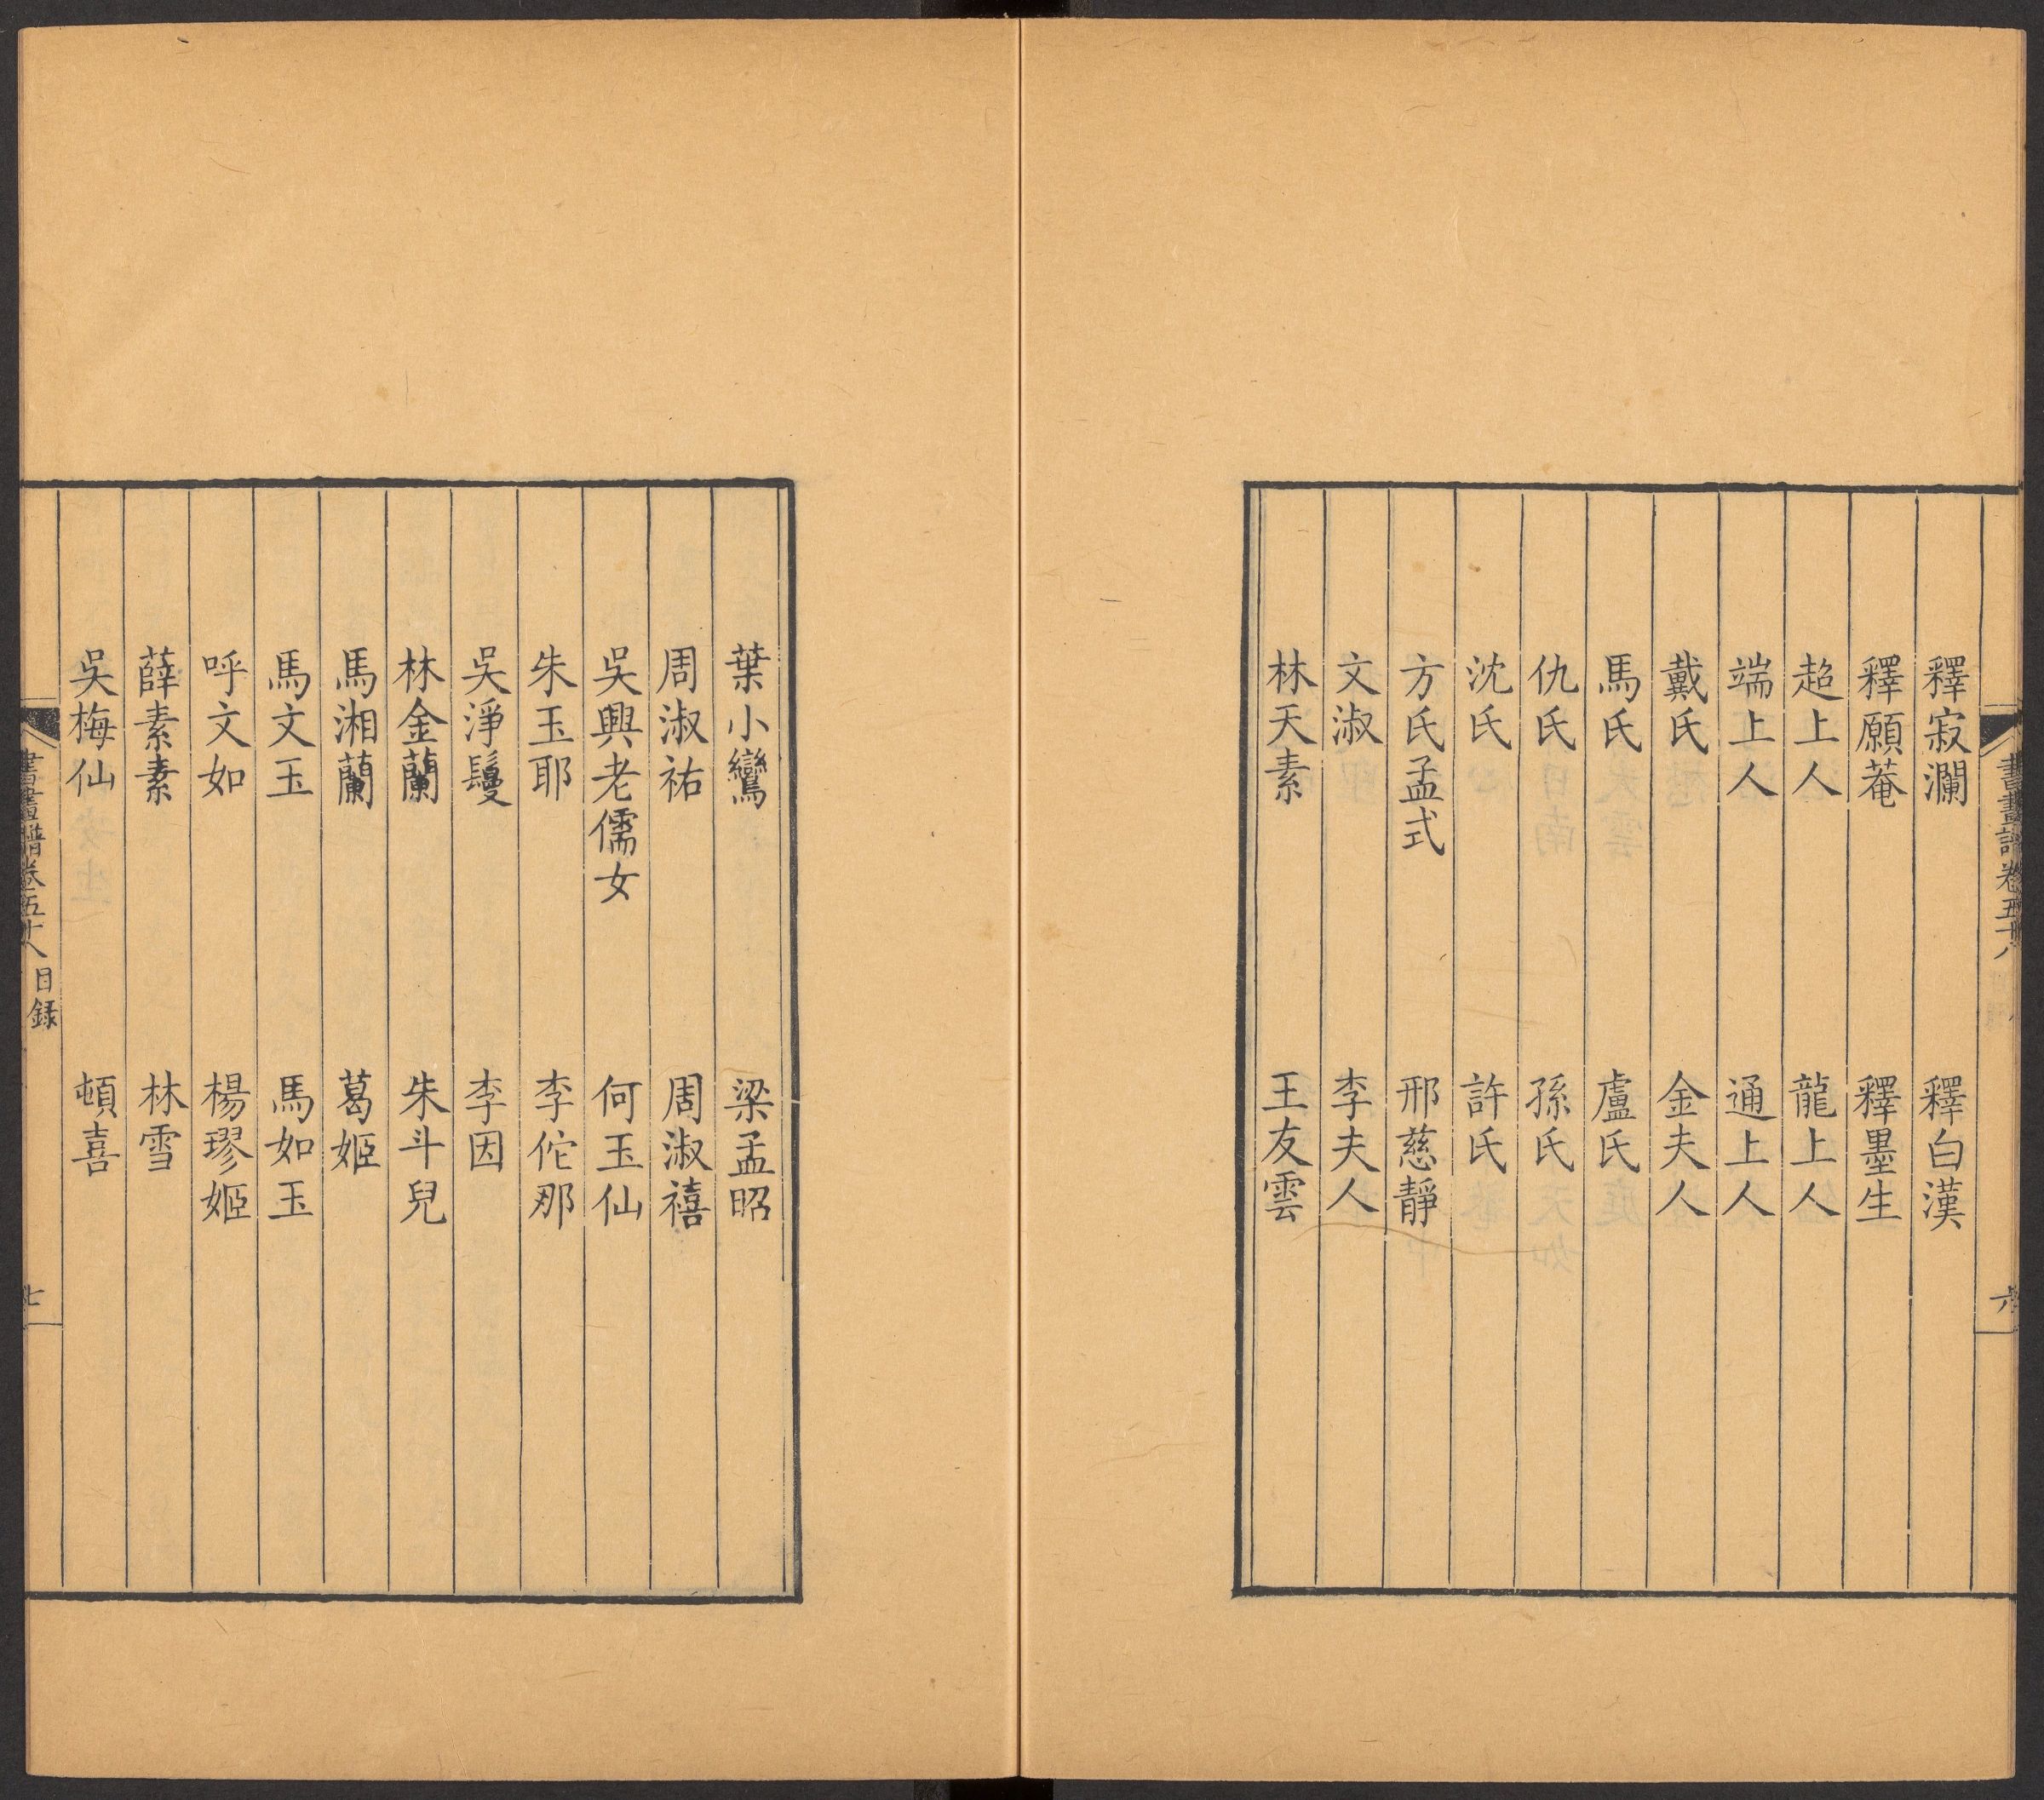 書畫譜卷五十八
六
釋寂瀾　釋白漢
釋願菴　釋墨生
超上人　龍上人
端上人　通上人
戴氏　金夫人
馬氏　盧氏
仇氏　孫氏
沈氏　許氏
方氏孟式　邢慈靜
文淑　李夫人
林天素　王友雲
葉小鸞　梁孟昭
周淑祐　周淑禧
吳興老儒女　何玉仙
朱玉耶　李佗那
吳淨鬘　李因
林金蘭　朱斗兒
馬湘蘭　葛姬
馬文玉　馬如玉
呼文如　楊璆姬
薛素素　林雪
吳梅仙　頓喜
書畫譜卷五十八 目錄
七